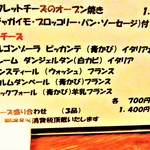 クレットチーズのオーブン焼き 1.
ジャガイモ・ブロッコリー・パン・ソーセージ)付
チーズ
ルゴンゾーラ ピッカンテ (青かび) イタリア
ルーム ダンジェルタン (白カビ) イタリア
ンスティール (ウォッシュ) フランス
ルムダンベール (青かび) フランス
ックフォール (青かび) 羊乳フランス
各 700円
ーズ盛り合わせ (3品) 1.400円
消費税頂戴いたします